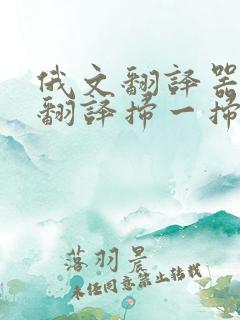 俄文翻譯器
翻譯掃一掃
落羽晨
未经同意禁止转载